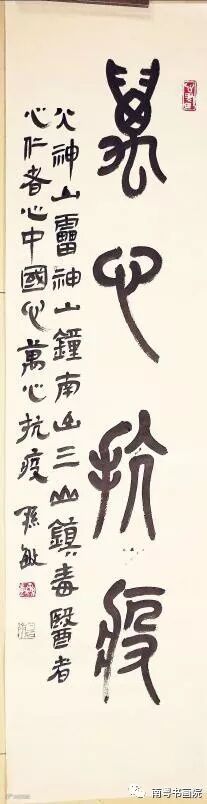 萬心抗疫
火神山雷神山鐘南山三山鎮毒醫者
心仁者心中國心萬心抗疫 孫敏
南粤书画院